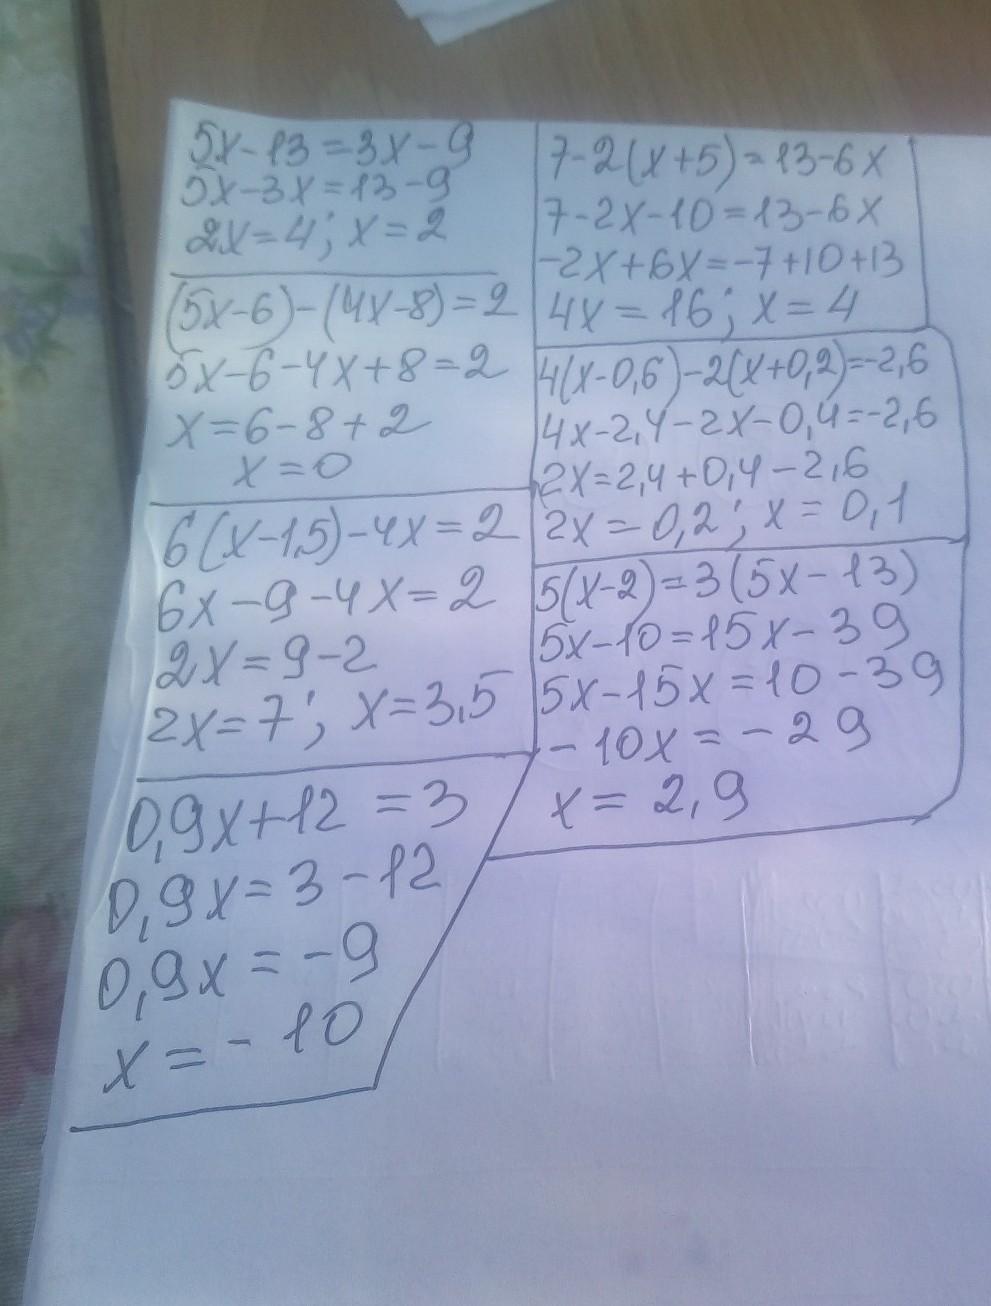 5x-13=3x-9
5x-3x=13-9
2x=4; x=2
(5x-6)-(4x-8)=2
5x-6-4x+8=2
x=6-8+2
x=0
6(x-1,5)-4x=2
6x-9-4x=2
2x=9-2
2x=7; x=3,5
0,9x+12=3
0,9x=3-12
0,9x=-9
x=-10
7-2(x+5)=13-6x
7-2x-10=13-6x
-2x+6x=-7+10+13
4x=16; x=4
4(x-0,6)-2(x+0,2)=-2,6
4x-2,4-2x-0,4=-2,6
2x=2,4+0,4-2,6
2x=0,2; x=0,1
5(x-2)=3(5x-13)
5x-10=15x-39
5x-15x=10-39
-10x=-29
x=2,9